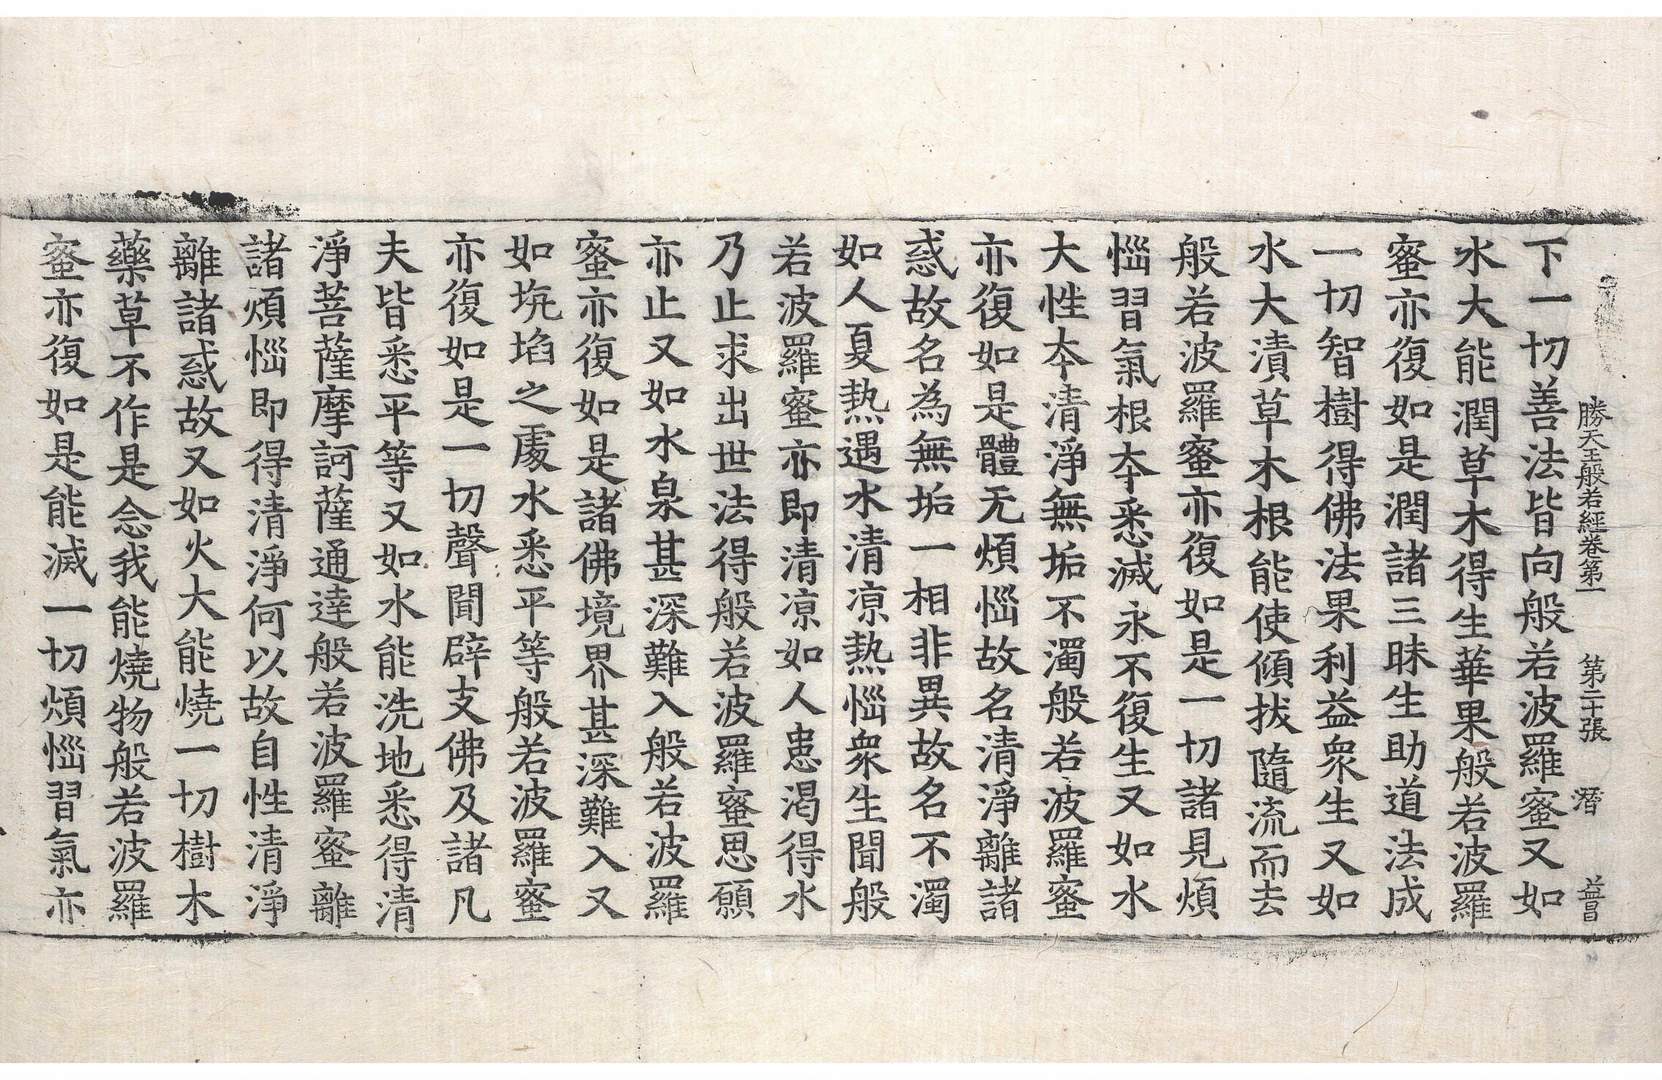 勝天王般若經卷第一　第二十張　潛　益昌
下一切善法皆向般若波羅蜜又如
水大能潤草木得生華果般若波羅
蜜亦復如是潤諸三昧生助道法成
一切智樹得佛法果利益衆生又如
水大漬草木根能使傾拔隨流而去
般若波羅蜜亦復如是一切諸見煩
惱習氣根夲悉滅永不復生又如水
大性夲清淨無垢不濁般若波羅蜜
亦復如是體无煩惱故名清淨離諸
惑故名為無垢一相非異故名不濁
如人夏熱遇水清凉熱惱衆生聞般
若波羅蜜亦即清凉如人患渴得水
乃止求出世法得般若波羅蜜思願
亦止又如水泉甚深難入般若波羅
蜜亦復如是諸佛境界甚深難入又
如坑埳之處水悉平等般若波羅蜜
亦復如是一切聲聞辟支佛及諸凡
夫皆悉平等又如水能洗地悉得清
淨菩薩摩訶薩通達般若波羅蜜離
諸煩惱即得清淨何以故自性清淨
離諸惑故又如火大能燒一切樹木
藥草不作是念我能燒物般若波羅
蜜亦復如是能滅一切煩惱習氣亦